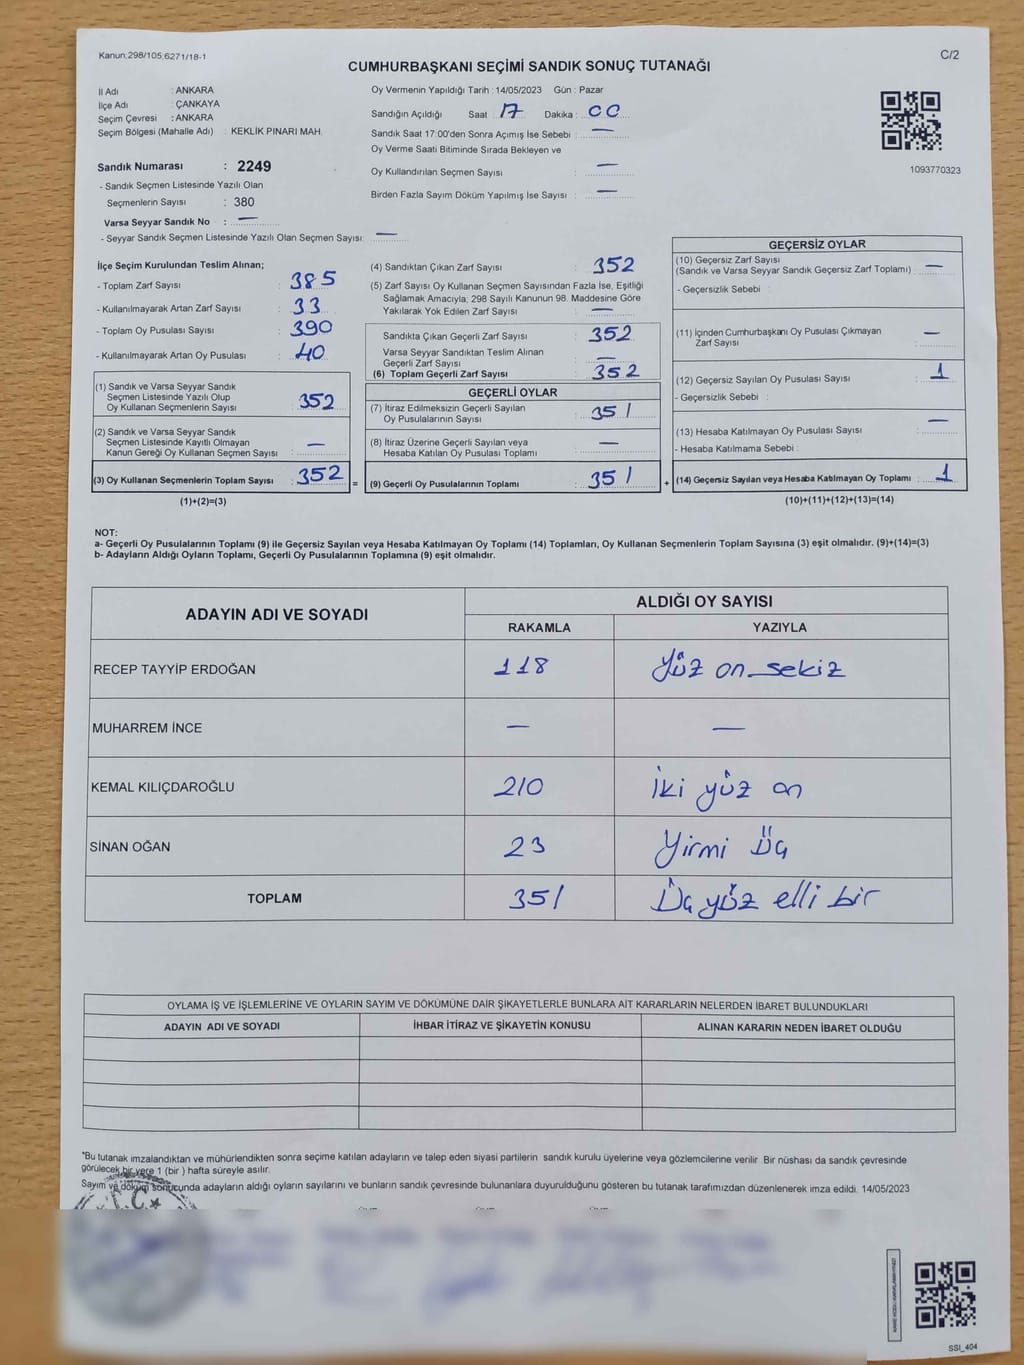 Kanun;298/105,6271/18-1
C/2
CUMHURBAŞKANI SEÇİMİ SANDIK SONUÇ TUTANAĞI
İl Adı : ANKARA
İlçe Adı : ÇANKAYA
Seçim Çevresi : ANKARA
Seçim Bölgesi (Mahalle Adı) : KEKLİK PINARI MAH.
Sandık Numarası : 2249
- Sandık Seçmen Listesinde Yazılı Olan
Seçmenlerin Sayısı : 380
Varsa Seyyar Sandık No : —
- Seyyar Sandık Seçmen Listesinde Yazılı Olan Seçmen Sayısı: —
Oy Vermenin Yapıldığı Tarih : 14/05/2023 Gün : Pazar
Sandığın Açıldığı Saat : 17 Dakika : 00
Sandık Saat 17:00'den Sonra Açımış İse Sebebi : —
Oy Verme Saati Bitiminde Sırada Bekleyen ve
Oy Kullandırılan Seçmen Sayısı : —
Birden Fazla Sayım Döküm Yapılmış İse Sayısı : —
1093770323
İlçe Seçim Kurulundan Teslim Alınan;
- Toplam Zarf Sayısı : 385
- Kullanılmayarak Artan Zarf Sayısı : 33
- Toplam Oy Pusulası Sayısı : 390
- Kullanılmayarak Artan Oy Pusulası : 40
(1) Sandık ve Varsa Seyyar Sandık
Seçmen Listesinde Yazılı Olup
Oy Kullanan Seçmenlerin Sayısı : 352
(2) Sandık ve Varsa Seyyar Sandık
Seçmen Listesinde Kayıtlı Olmayan
Kanun Gereği Oy Kullanan Seçmen Sayısı : —
(3) Oy Kullanan Seçmenlerin Toplam Sayısı : 352 =
(1)+(2)=(3)
(4) Sandıktan Çıkan Zarf Sayısı : 352
(5) Zarf Sayısı Oy Kullanan Seçmen Sayısından Fazla İse, Eşitliği
Sağlamak Amacıyla; 298 Sayılı Kanunun 98. Maddesine Göre
Yakılarak Yok Edilen Zarf Sayısı : —
Sandıkta Çıkan Geçerli Zarf Sayısı : 352
Varsa Seyyar Sandıktan Teslim Alınan
Geçerli Zarf Sayısı : —
(6) Toplam Geçerli Zarf Sayısı : 352
GEÇERLİ OYLAR
(7) İtiraz Edilmeksizin Geçerli Sayılan
Oy Pusulalarının Sayısı : 351
(8) İtiraz Üzerine Geçerli Sayılan veya
Hesaba Katılan Oy Pusulası Toplamı : —
(9) Geçerli Oy Pusulalarının Toplamı : 351 +
GEÇERSİZ OYLAR
(10) Geçersiz Zarf Sayısı
(Sandık ve Varsa Seyyar Sandık Geçersiz Zarf Toplamı) : —
- Geçersizlik Sebebi :
(11) İçinden Cumhurbaşkanı Oy Pusulası Çıkmayan
Zarf Sayısı : —
(12) Geçersiz Sayılan Oy Pusulası Sayısı : 1
- Geçersizlik Sebebi :
(13) Hesaba Katılmayan Oy Pusulası Sayısı : —
- Hesaba Katılmama Sebebi :
(14) Geçersiz Sayılan veya Hesaba Katılmayan Oy Toplamı : 1
(10)+(11)+(12)+(13)=(14)
NOT:
a- Geçerli Oy Pusulalarının Toplamı (9) ile Geçersiz Sayılan veya Hesaba Katılmayan Oy Toplamı (14) Toplamları, Oy Kullanan Seçmenlerin Toplam Sayısına (3) eşit olmalıdır. (9)+(14)=(3)
b- Adayların Aldığı Oyların Toplamı, Geçerli Oy Pusulalarının Toplamına (9) eşit olmalıdır.
ADAYIN ADI VE SOYADI
ALDIĞI OY SAYISI
RAKAMLA YAZIYLA
RECEP TAYYİP ERDOĞAN 118 Yüz on sekiz
MUHARREM İNCE — —
KEMAL KILIÇDAROĞLU 210 İki yüz on
SİNAN OĞAN 23 Yirmi Üç
TOPLAM 351 Üç yüz elli bir
OYLAMA İŞ VE İŞLEMLERİNE VE OYLARIN SAYIM VE DÖKÜMÜNE DAİR ŞİKAYETLERLE BUNLARA AİT KARARLARIN NELERDEN İBARET BULUNDUKLARI
ADAYIN ADI VE SOYADI İHBAR İTİRAZ VE ŞİKAYETİN KONUSU ALINAN KARARIN NEDEN İBARET OLDUĞU
*Bu tutanak imzalandıktan ve mühürlendikten sonra seçime katılan adayların ve talep eden siyasi partilerin sandık kurulu üyelerine veya gözlemcilerine verilir. Bir nüshası da sandık çevresinde
görülecek bir yere 1 (bir ) hafta süreyle asılır.
Sayım ve döküm sonucunda adayların aldığı oyların sayılarını ve bunların sandık çevresinde bulunanlara duyurulduğunu gösteren bu tutanak tarafımızdan düzenlenerek imza edildi. 14/05/2023
T.C.
SSI_404